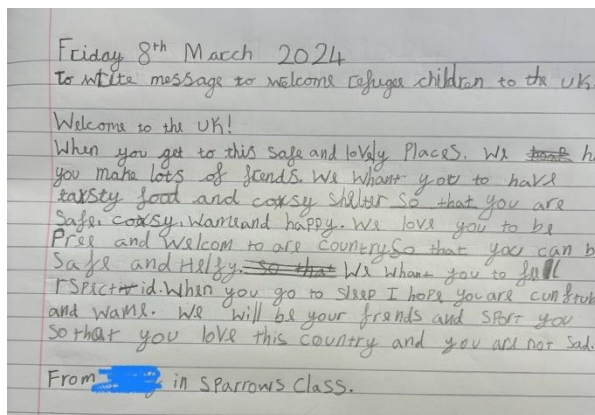 Friday 8th March 2024
to write message to welcome refugee children to the UK
Welcome to the UK!
When you get to this safe and lovely Places. We
you make lots of frends. We whant you to have
taxsty food and coxsy shelter so that you are
safe. coxsy, wame and happy. We love you to be
Free and welcom to are country So that you can b
safe and Helfy. We whant you to full
rspect id. When you go to sleep I hope you are
and wame. We will be your frends and sport you
so that you love this country and you are not sad.
From in Sparrows Class.